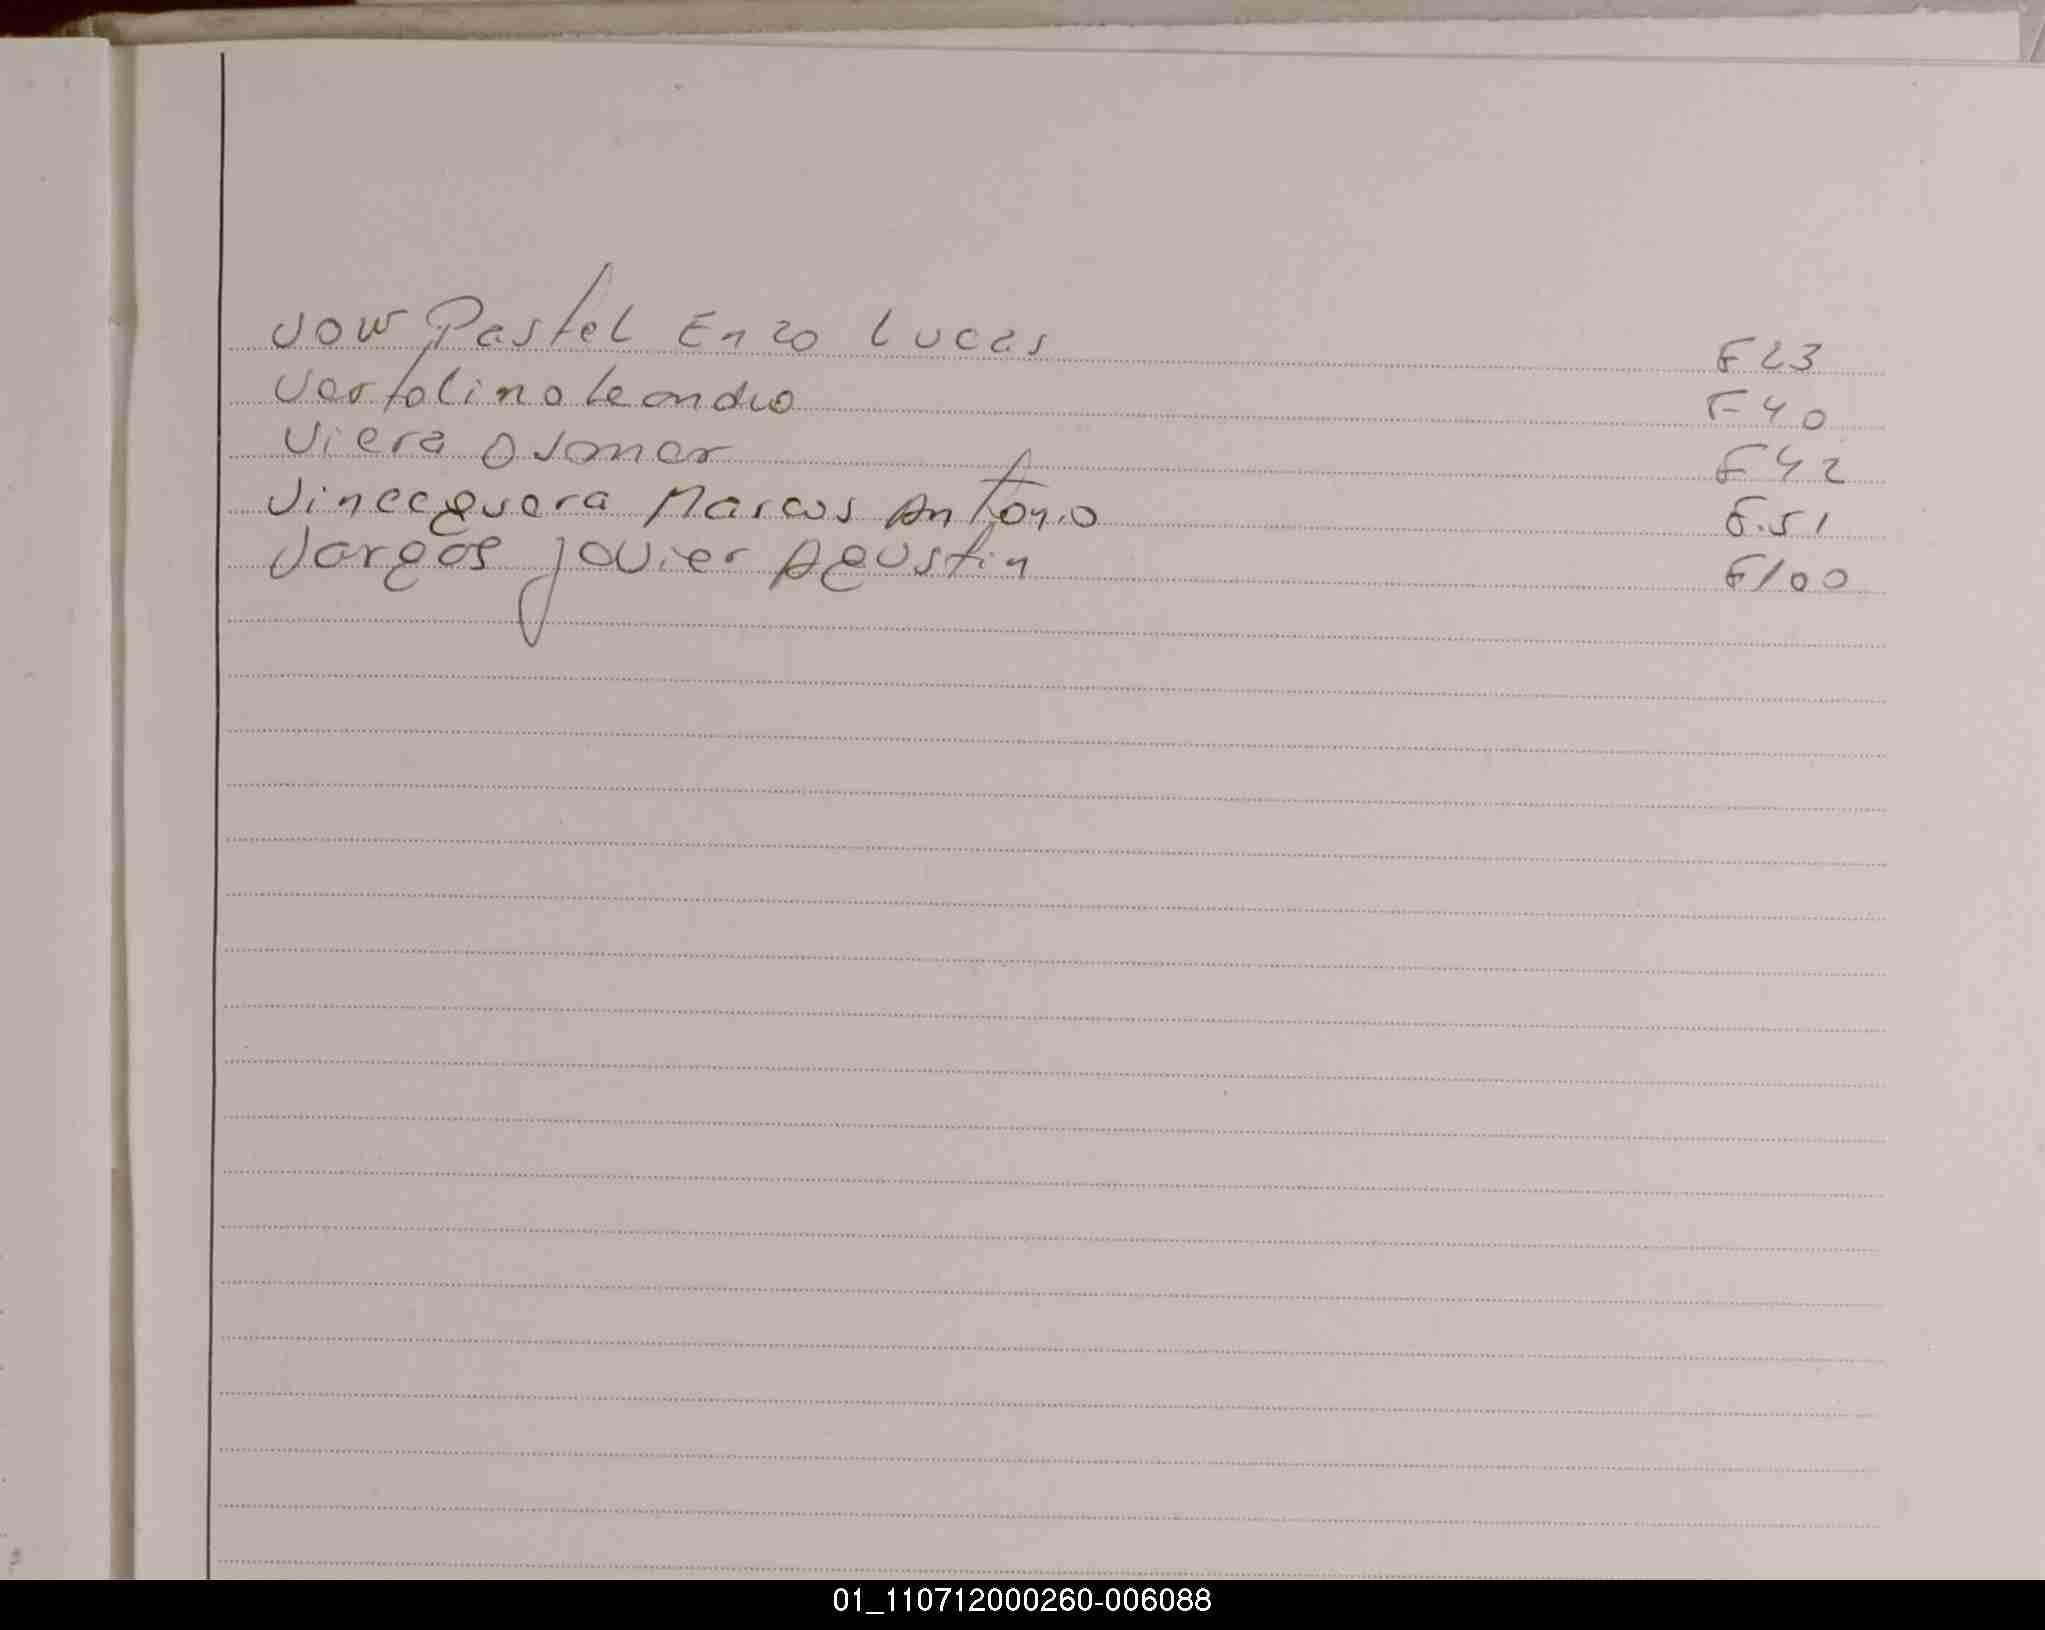 Vow Pastel Enzo Lucas F 23
Vertolino Leandro F 40
Viera Osomar F 42
Vinecguera Marcos Antonio F.51
Vargas Javier Agustin F100
01_110712000260-006088